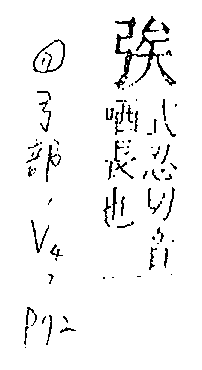 式忍切音
哂長也
弓部,V4,P92